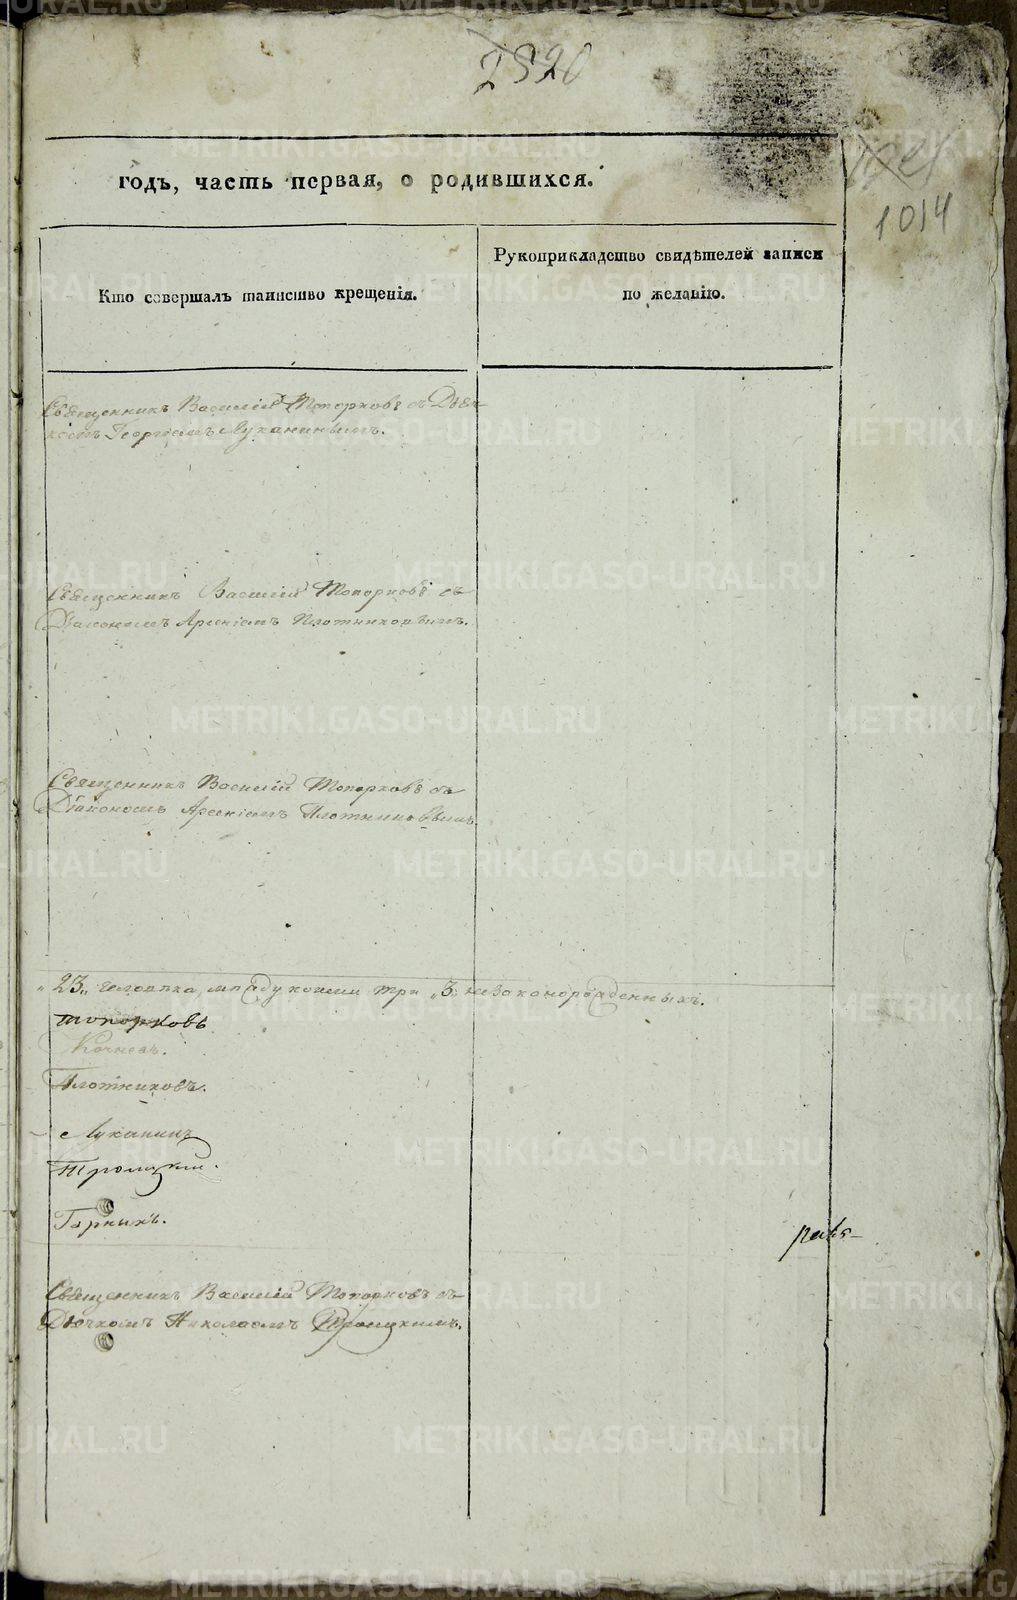 2820
годъ, часть первая, о родившихся.
1014
Кто совершалъ таинство крещенія.
Рукоприкладство свидѣтелей записи
по желанію.
Священникъ Василій Топорковъ съ Дьяч-
комъ Георгіемъ Луканинымъ.
Священникъ Василій Топорковъ съ
Діакономъ Арсеніемъ Плотниковымъ.
Священникъ Василій Топорковъ съ
Діакономъ Арсеніемъ Плотниковымъ.
„23„ человѣка, между коими три „3„ незаконорожденныхъ.
Топорковъ
Кочневъ.
Плотниковъ.
Луканинъ
Троицкій.
Горнихъ.
Священникъ Василій Топорковъ съ
Дьячкомъ Николаемъ Троицкимъ.
METRIKI.GASO-URAL.RU